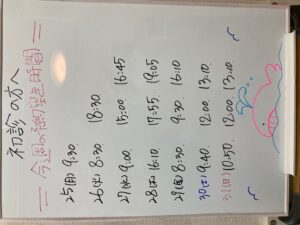 初診の方へ
＝今週の予約空き時間＝
25(月) 9:30
26(火) 8:30 18:30
27(水) 9:00 15:00 16:45
28(木) 16:10 17:55 19:05
29(金) 8:30 9:30 16:10
30(土) 9:40 12:00 13:10
31(日) 10:50 12:00 13:10